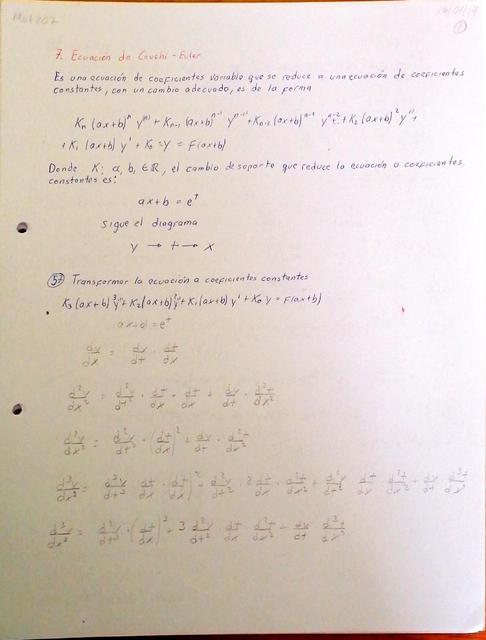 Mat 202
①
7. Ecuación de Cauchi - Euler
Es una ecuación de coeficientes variable que se reduce a una ecuación de coeficientes
constantes, con un cambio adecuado, es de la forma
Kn (ax+b)^n y^(n) + Kn-1 (ax+b)^n-1 y^n-1 + Kn-2 (ax+b)^n-2 y^n-2 + K2 (ax+b)^2 y'' +
+ K1 (ax+b) y' + K0 y = F(ax+b)
Donde K; a, b, ∈ ℝ, el cambio de soporte que reduce la ecuación a coeficientes
constantes es:
ax+b = e^t
sigue el diagrama
y → t → x
57 Transformar la ecuación a coeficientes constantes
K3 (ax+b)^3 y''' + K2 (ax+b)^2 y'' + K1 (ax+b) y' + K0 y = F(ax+b)
ax+b = e^t
dy/dx = dy/dt · dt/dx
d²y/dx² = d²y/dt² · dt/dx · dt/dx + dy/dt · d²t/dx²
d²y/dx² = d²y/dt² · (dt/dx)² + dy/dt · d²t/dx²
d³y/dx³ = d³y/dt³ dt/dx · (dt/dx)² + d²y/dt² · 2 dt/dx · d²t/dx² + d²y/dt² dt/dx d²t/dx² + dy/dt d³t/dx³
d³y/dx³ = d³y/dt³ · (dt/dx)³ + 3 d²y/dt² dt/dx d²t/dx² + dy/dt d³t/dx³